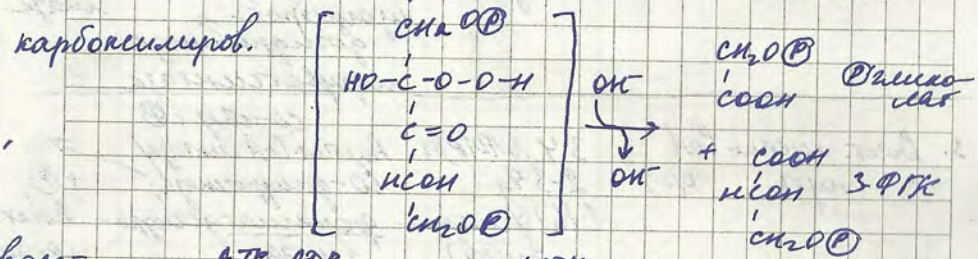 карбоксимиров.
CH₂OⓅ
HO-C-O-O-H
C=O
HCOH
CH₂OⓅ
OH⁻
OH⁻
CH₂OⓅ
COOH
Ⓟглико-
лат
+ COOH
HCOH 3-ФГК
CH₂OⓅ